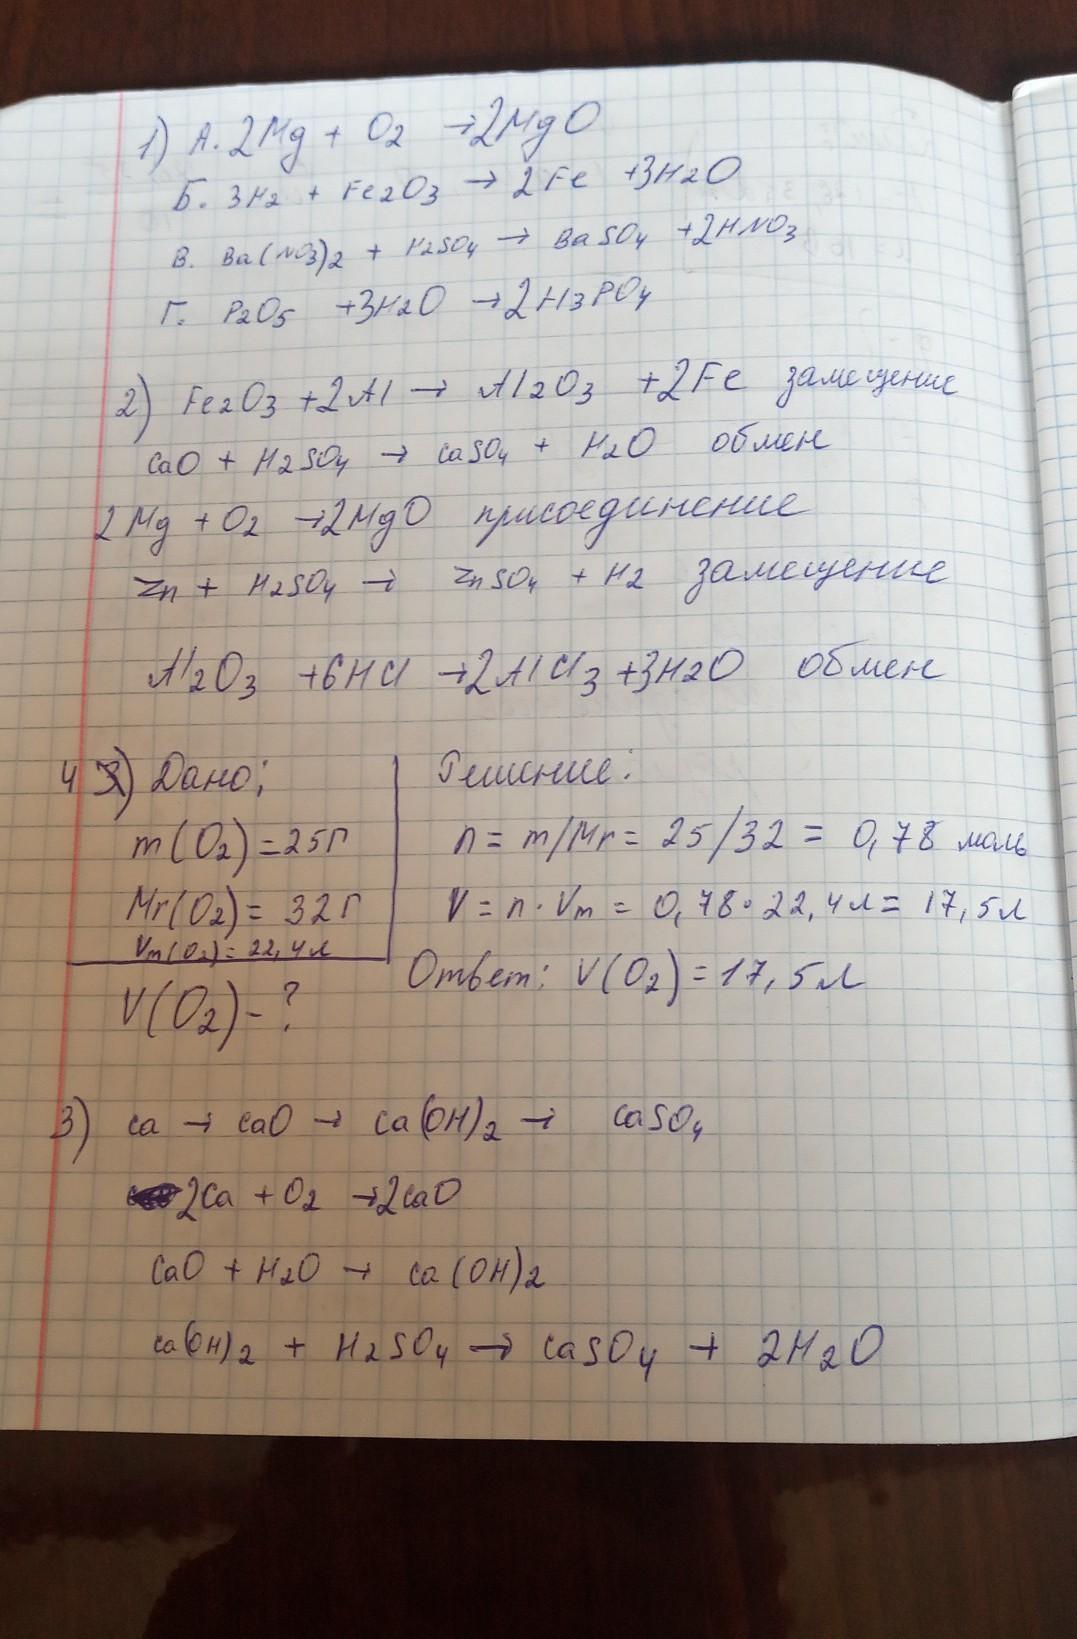 1) А. 2Mg + O2 → 2MgO
Б. 3H2 + Fe2O3 → 2Fe + 3H2O
В. Ba(NO3)2 + H2SO4 → BaSO4 + 2HNO3
Г. P2O5 + 3H2O → 2H3PO4
2) Fe2O3 + 2Al → Al2O3 + 2Fe замещение
CaO + H2SO4 → CaSO4 + H2O обмен
2Mg + O2 → 2MgO присоединение
Zn + H2SO4 → ZnSO4 + H2 замещение
Al2O3 + 6HCl → 2AlCl3 + 3H2O обмен
4) Дано: Решение:
m(O2) = 25г n = m/Mr = 25/32 = 0,78 моль
Mr(O2) = 32г V = n · Vm = 0,78 · 22,4л = 17,5л
Vm(O2) = 22,4л
V(O2) - ? Ответ: V(O2) = 17,5л
3) Ca → CaO → Ca(OH)2 → CaSO4
2Ca + O2 → 2CaO
CaO + H2O → Ca(OH)2
Ca(OH)2 + H2SO4 → CaSO4 + 2H2O